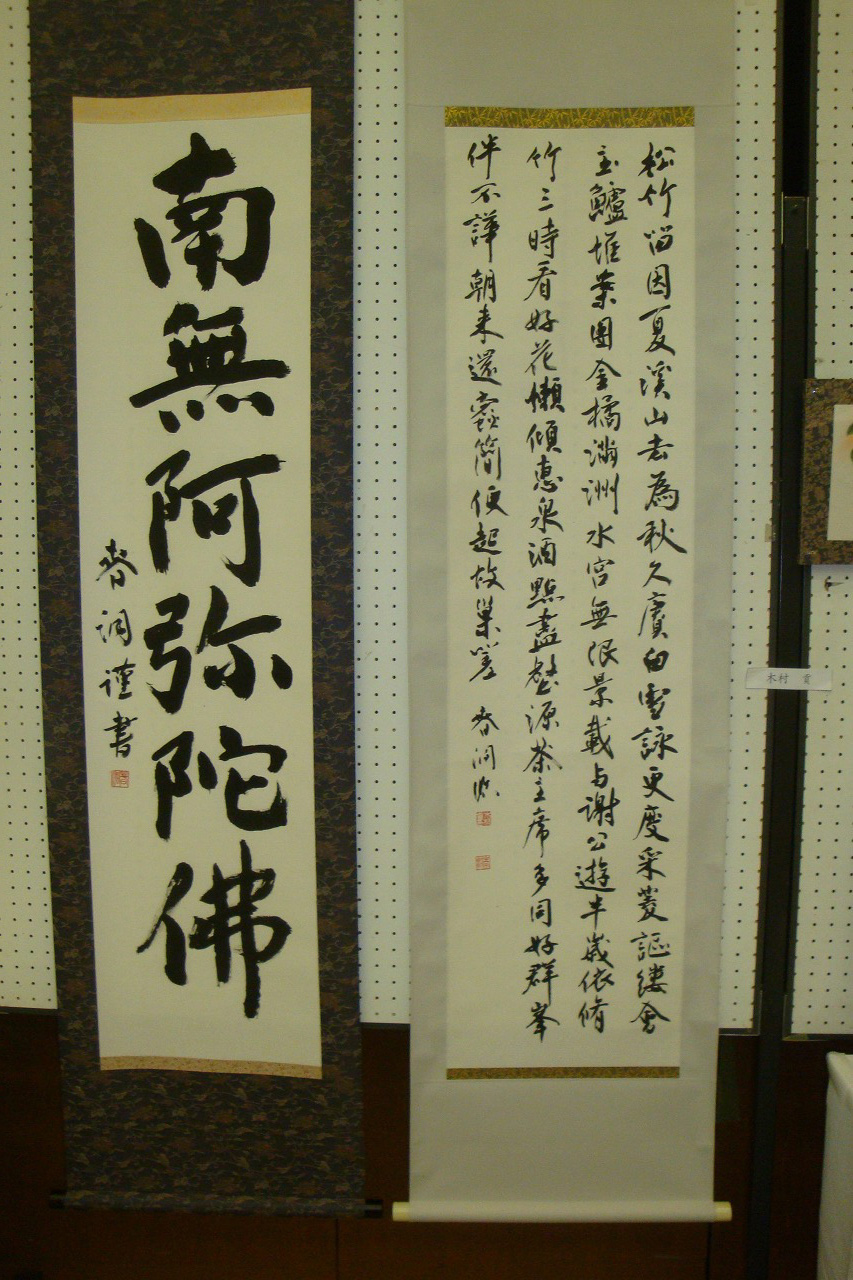 松竹留因夏溪山去為秋久賡白雪詠更度采菱謳縷會
玉鱸堆案團金橘滿洲水宮無限景載与謝公遊半歲依脩
竹三時看好花懶傾惠泉酒點盡壑源茶主席多同好群峯
伴不譁朝来還蠹簡便起故巢嗟 春洞臨
南無阿弥陀佛
春洞謹書
木村